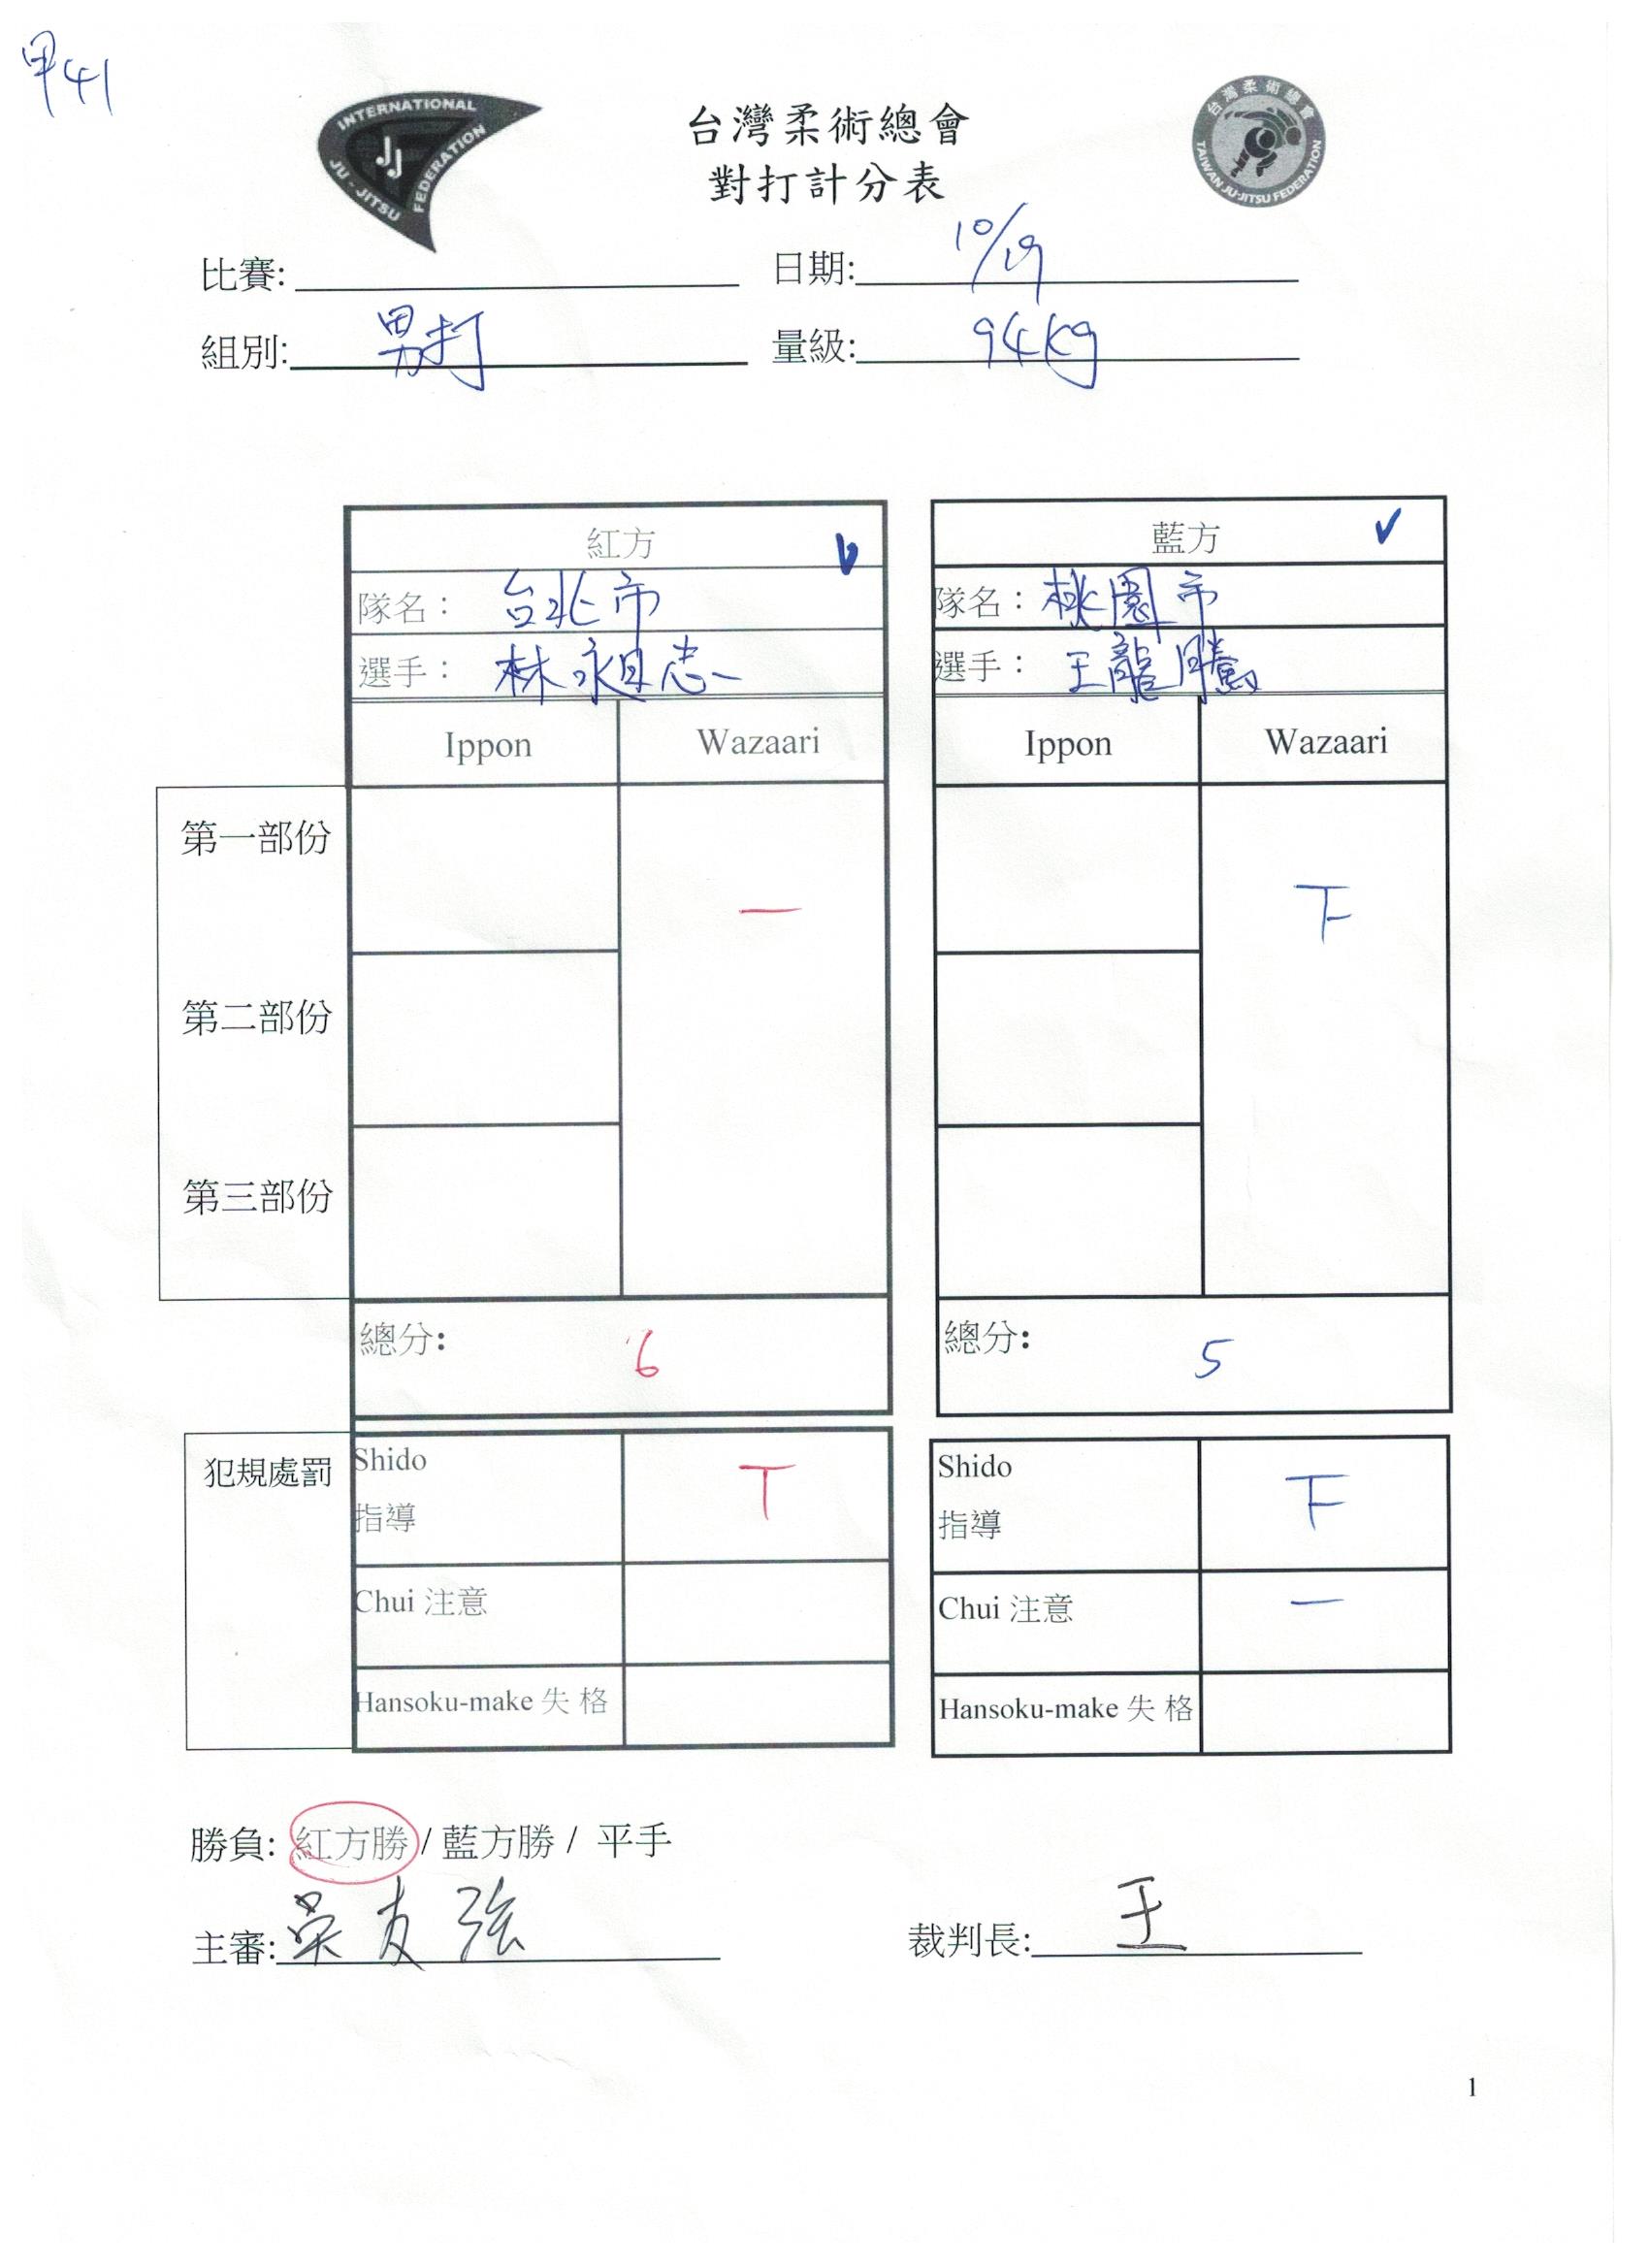 甲41
INTERNATIONAL JU-JITSU FEDERATION
JJ
台灣柔術總會
TAIWAN JU-JITSU FEDERATION
台灣柔術總會
對打計分表
比賽: 日期: 10/19
組別: 男打 量級: 94kg
紅方 藍方
隊名： 台北市 隊名： 桃園市
選手： 林 志 選手： 王龍騰
Ippon Wazaari Ippon Wazaari
第一部份
一 下
第二部份
第三部份
總分: 6 總分: 5
犯規處罰 Shido T Shido 下
指導 指導
Chui 注意 Chui 注意 一
Hansoku-make 失 格 Hansoku-make 失 格
勝負: 紅方勝 / 藍方勝 / 平手
主審: 吳友強 裁判長: 王
1